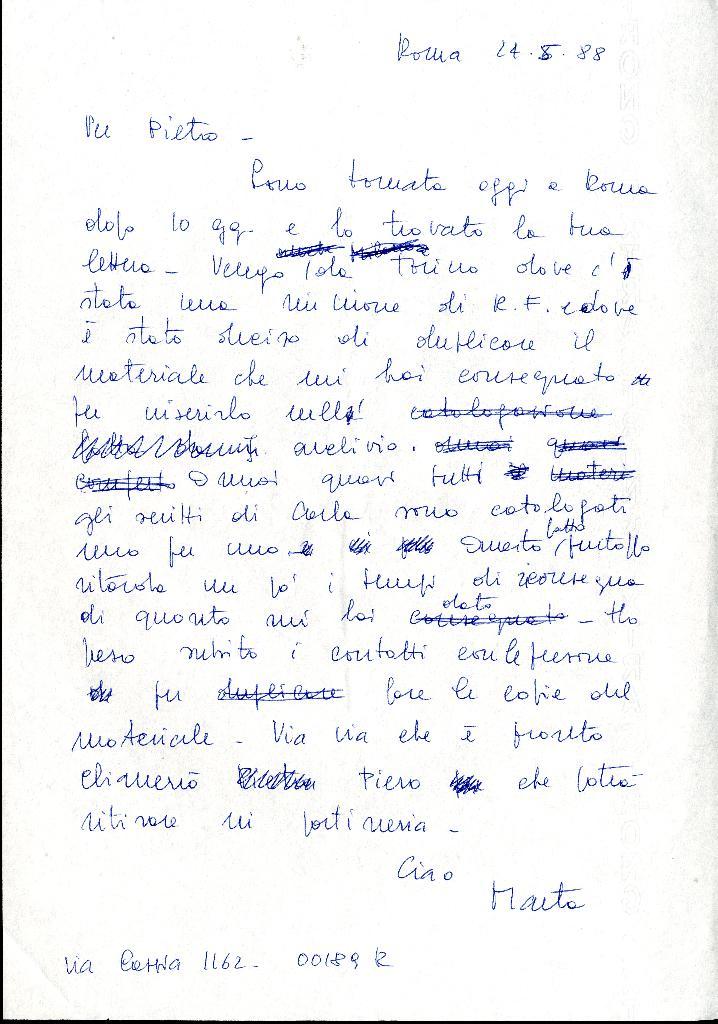 Roma 24.5.88
Per Pietro -
Sono tornata oggi a Roma
dopo 10 gg. e ho trovato la tua
lettera - Vengo da Torino dove c'è
stata una riunione di R.F. e dove
è stato deciso di duplicare il
materiale che mi hai consegnato
per inserirlo nell' catalogazione
archivio. ormai quasi
Ormai quasi tutti materi
gli scritti di Carla sono catalogati
uno per uno. Questo fatto purtroppo
ritarda un po' i tempi di riconsegna
di quanto mi hai consegnato dato - Ho
preso subito i contatti con le persone
per duplicare fare le copie del
materiale - Via via che è pronto
chiamerò Piero che potrà
ritirare in portineria -
Ciao
Marta
Via Cassia 1162 - 00189 R